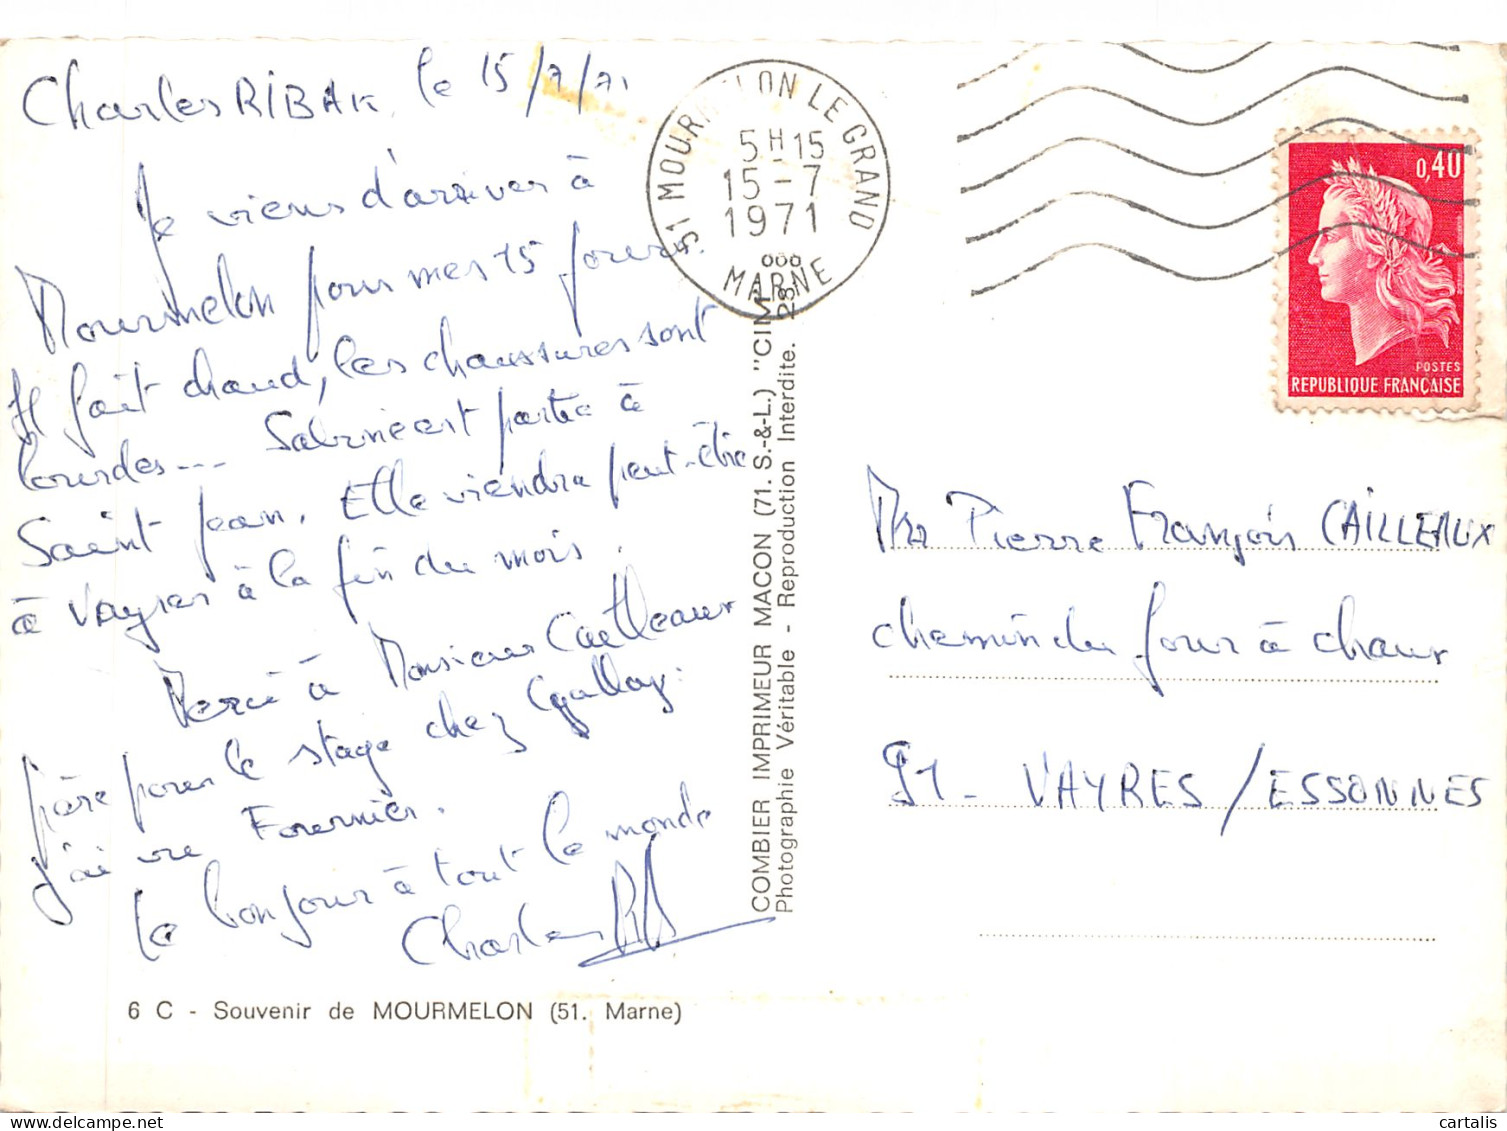 Charles RIBAK, le 15/7/71
Je viens d'arriver à
Mourmelon pour mes 15 jours.
Il fait chaud, les chaussures sont
lourdes --- Sabine est partie à
Saint Jean. Elle viendra peut-être
à Vayres à la fin du mois.
Merci à Monsieur Cailleaux
père pour le stage chez Gallay:
j'ai vu Fournier.
Le bonjour à tout le monde
Charles
6 C - Souvenir de MOURMELON (51. Marne)
COMBIER IMPRIMEUR MACON (71. S.-&-L.) "CIM"
Photographie Véritable - Reproduction Interdite.
51 MOURMELON LE GRAND
5H15
15-7
1971
MARNE
0,40
POSTES
REPUBLIQUE FRANÇAISE
Mr Pierre François CAILLEAUX
chemin du four à chaux
91 - VAYRES/ESSONNES
cartalis